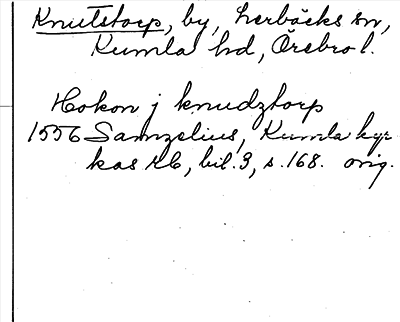 Knutstorp, by, Lerbäcks sn,
Kumla hd, Örebro l.
Hokon j knudztorp
1556 Samzelius, Kumla kyr-
kas rb, bil. 3, s. 168. orig.